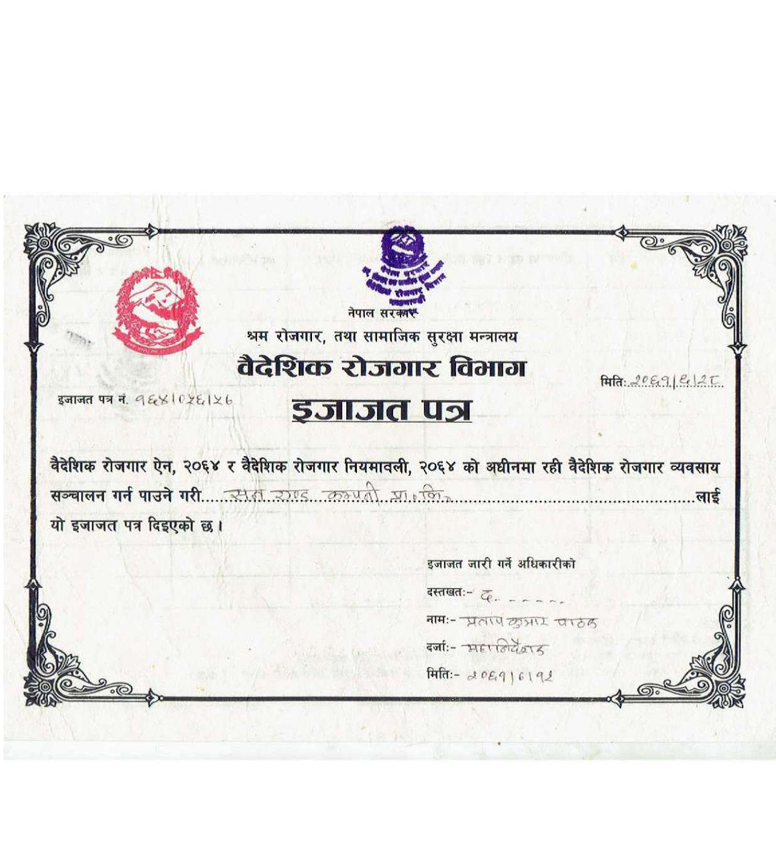 नेपाल सरकार
श्रम रोजगार, तथा सामाजिक सुरक्षा मन्त्रालय
वैदेशिक रोजगार विभाग
मितिः
इजाजत पत्र नं.
इजाजत पत्र
वैदेशिक रोजगार ऐन, २०६४ र वैदेशिक रोजगार नियमावली, २०६४ को अधीनमा रही वैदेशिक रोजगार व्यवसाय
सञ्चालन गर्न पाउने गरी..... एण्ड कम्पनी प्रा॰लि॰ .....लाई
यो इजाजत पत्र दिइएको छ।
इजाजत जारी गर्ने अधिकारीको
दस्तखतः- द.
नामः- प्रताप कुमार पाठक
दर्जाः- महानिर्देशक
मितिः-